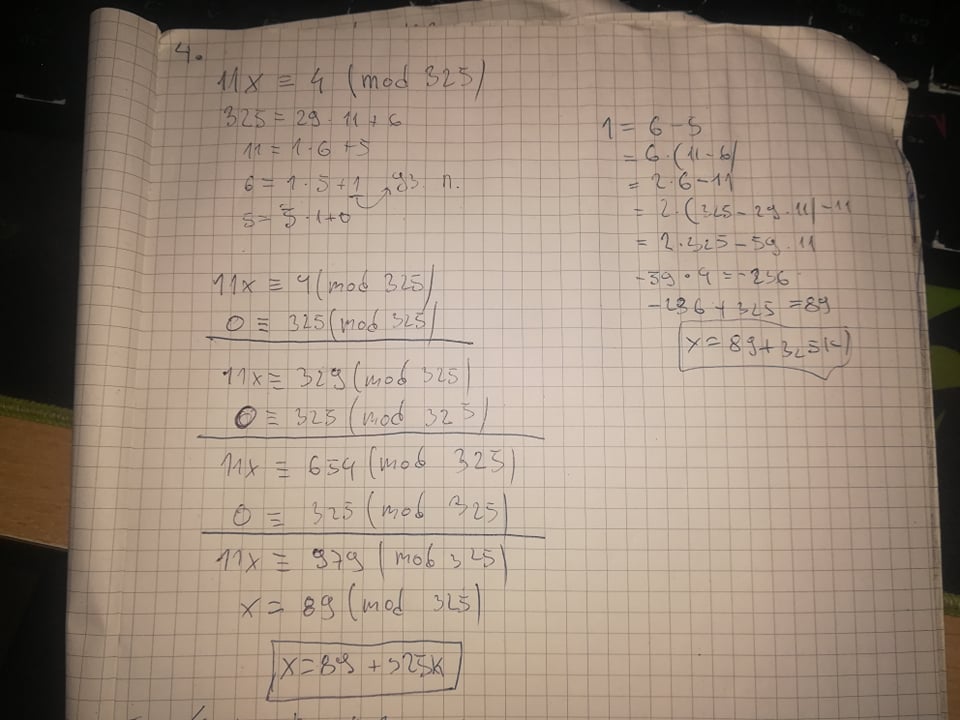 4.
11x ≡ 4 (mod 325)
325 = 29 · 11 + 6
11 = 1 · 6 + 5
6 = 1 · 5 + 1
5 = 5 · 1 + 0
11x ≡ 4 (mod 325)
0 ≡ 325 (mod 325)
11x ≡ 329 (mod 325)
0 ≡ 325 (mod 325)
11x ≡ 654 (mod 325)
0 ≡ 325 (mod 325)
11x ≡ 979 (mod 325)
x = 89 (mod 325)
x = 89 + 325k
1 = 6 - 5
= 6 · (11 - 6)
= 2 · 6 - 11
= 2 · (325 - 29 · 11) - 11
= 2 · 325 - 59 · 11
-59 · 4 = -236
-236 + 325 = 89
x = 89 + 325k